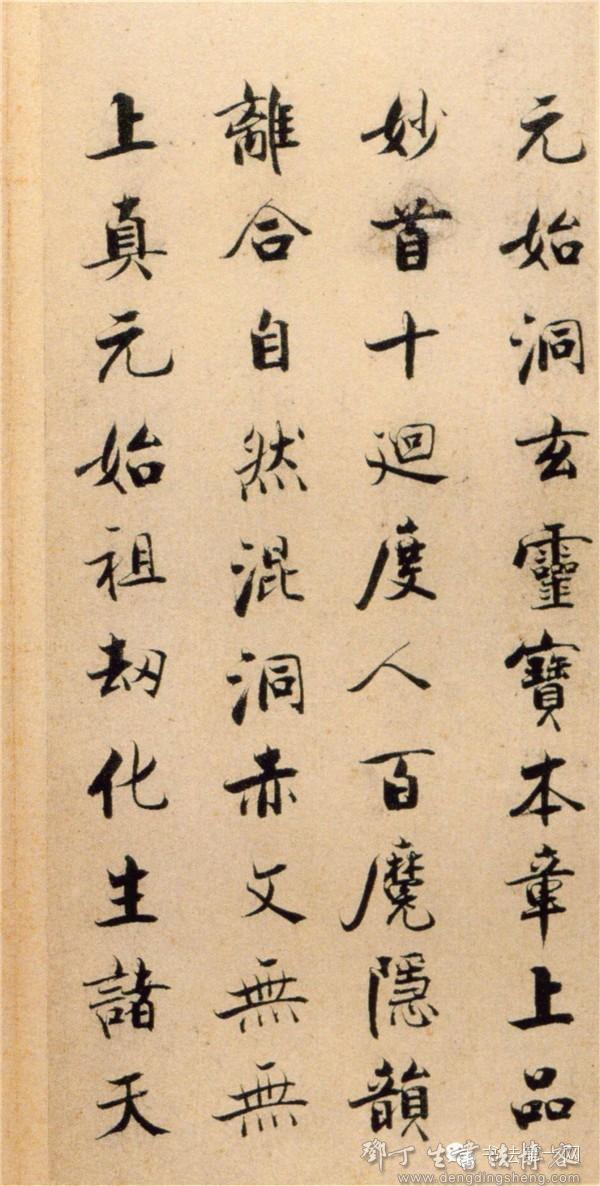 元始洞玄靈寶本章上品
妙首十迴度人百魔隱韻
離合自然混洞赤文無無
上真元始祖劫化生諸天
鄧丁生書法博客
书法博客网
www.dengdingsheng.com